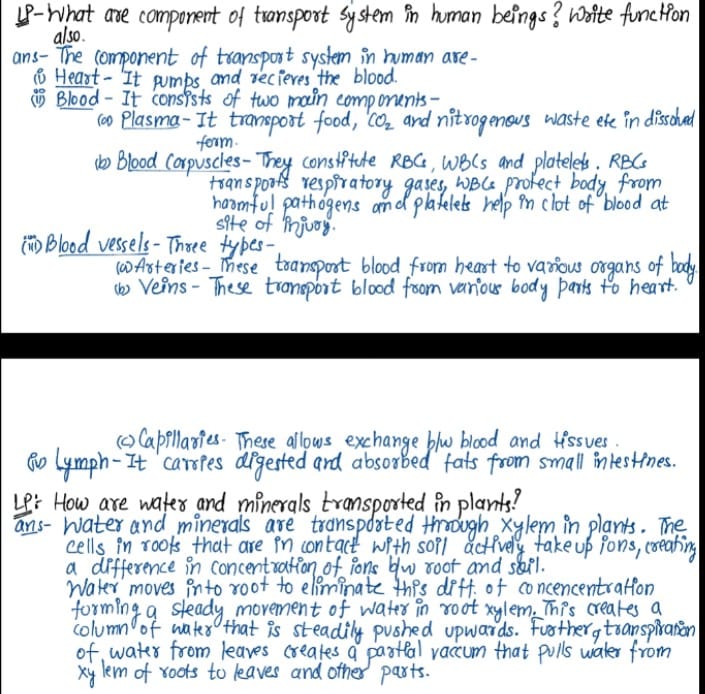 LP- What are component of transport system in human beings? Write function
also.
ans- The component of transport system in human are -
(i) Heart - It pumps and recieves the blood.
(ii) Blood - It consists of two main components -
(a) Plasma - It transport food, CO2 and nitrogenous waste etc in dissolved
form.
(b) Blood Corpuscles - They constitute RBCs, WBCs and platelets. RBCs
transports respiratory gases, WBCs protect body from
harmful pathogens and platelets help in clot of blood at
site of injury.
(iii) Blood vessels - Three types -
(a) Arteries - These transport blood from heart to various organs of body.
(b) Veins - These transport blood from various body parts to heart.
(c) Capillaries - These allows exchange b/w blood and tissues.
(iv) Lymph - It carries digested and absorbed fats from small intestines.
LP: How are water and minerals transported in plants?
ans- Water and minerals are transported through xylem in plants. The
cells in roots that are in contact with soil actively take up ions, creating
a difference in concentration of ions b/w root and soil.
Water moves into root to eliminate this diff. of concencentration
forming a steady movement of water in root xylem. This creates a
column of water that is steadily pushed upwards. Further, transpiration
of water from leaves creates a partial vaccum that pulls water from
xylem of roots to leaves and other parts.